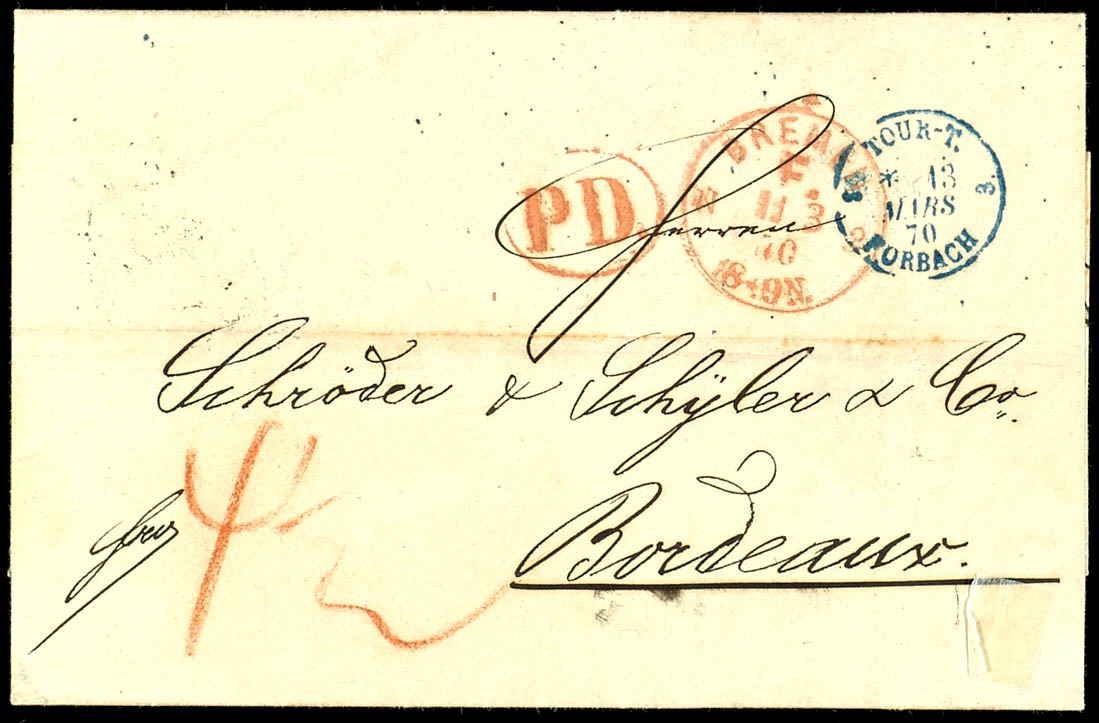 PD
BREMEN
F.
11 3
8-9N.
TOUR-T.
3.
13
MARS
70
FORBACH
Herren
Schröder & Schÿler & Co.
Bordeaux.
4½